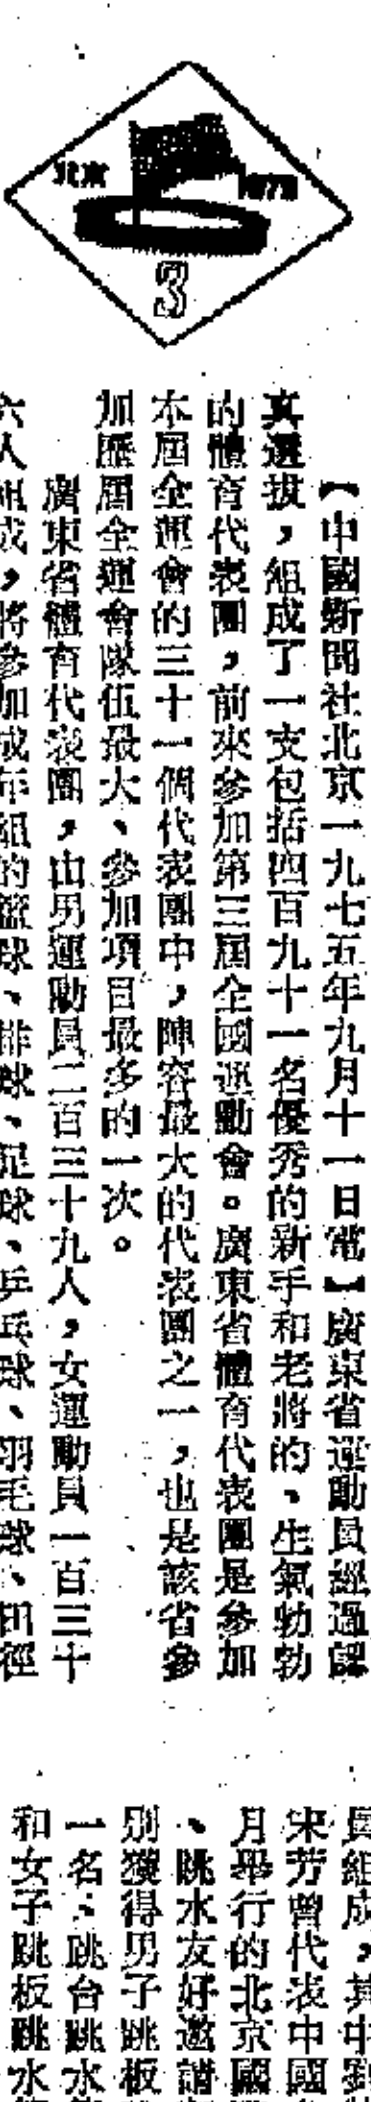 北京
1975
3
【中國新聞社北京一九七五年九月十一日電】廣東省運動員經過認
真選拔，組成了一支包括四百九十一名優秀的新手和老將的、生氣勃勃
的體育代表團，前來參加第三屆全國運動會。廣東省體育代表團是參加
本屆全運會的三十一個代表團中，陣容最大的代表團之一，也是該省參
加歷屆全運會隊伍最大、參加項目最多的一次。
廣東省體育代表團，由男運動員二百三十九人，女運動員一百三十
六人組成，將參加成年組的籃球、排球、足球、乒乓球、羽毛球、田徑
員組成，其中
宋芳曾代表中國
月舉行的北京國
、跳水友好邀請
別獲得男子跳板
一名；跳台跳水
和女子跳板跳水